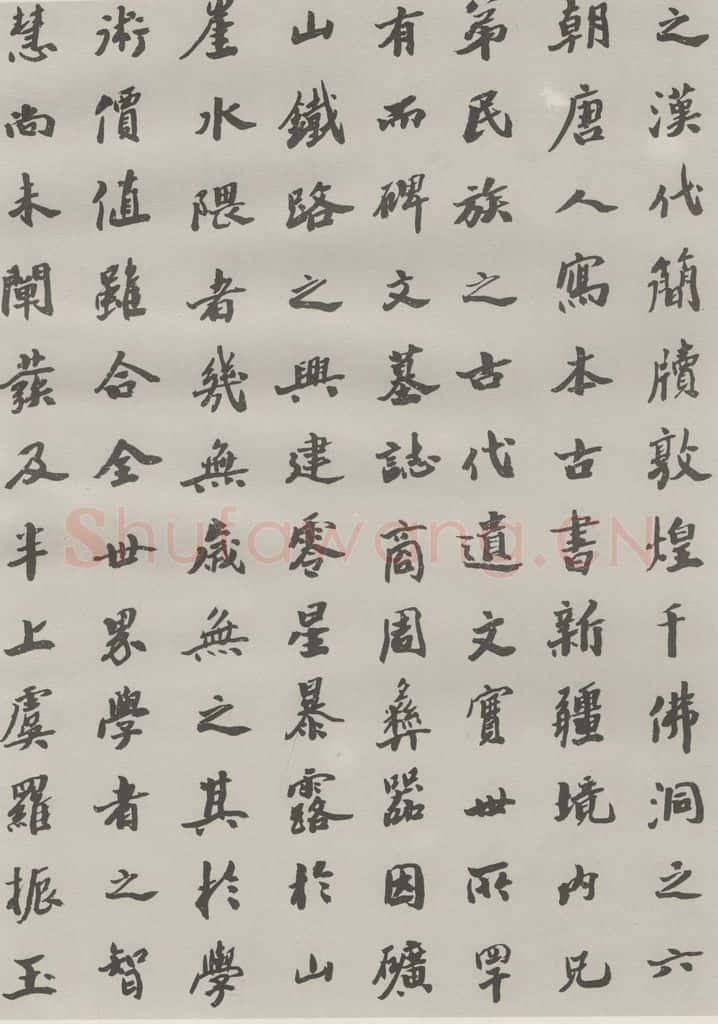 之漢代簡牘敦煌千佛洞之六
朝唐人寫本古書新疆境內兄
弟民族之古代遺文實世所罕
有而碑文墓誌商周彝器因礦
山鐵路之興建零星暴露於山
崖水隈者幾無歲無之其於學
術價值雖合全世界學者之智
慧尚未闡發及半上虞羅振玉
Shufawang.CN